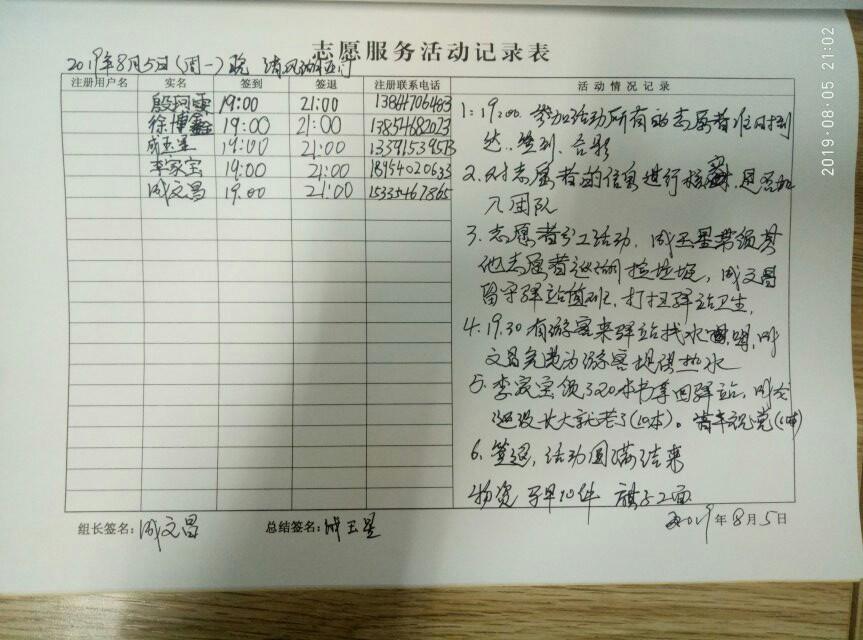 志愿服务活动记录表
2019年8月5日(周一)晚
注册用户名 实名 签到 签退 注册联系电话 活动情况记录
19:00 21:00
徐博鑫 19:00 21:00 13854682023
成玉星 19:00 21:00
李家宝 19:00 21:00 18954020633
成文昌 19:00 21:00 15335467865
1:19:00. 参加活动所有的志愿者准时到
达、签到、合影
2、对志愿者的信息进行核 是否加
入团队
3、志愿者分工活动,成玉星带领其
他志愿者巡湖捡垃圾,成文昌
留守驿站值班,打扫驿站卫生.
4、19.30有游客来驿站找水喝,成
文昌免费为游客提供热水
5、李家宝领了20本书拿回驿站,
还没长大就老了(10本)。
6、签退,活动圆满结束
物资 马甲10件 旗子2面
2019年8月5日
组长签名:成文昌 总结签名:成玉星
2019-08-05 21:02